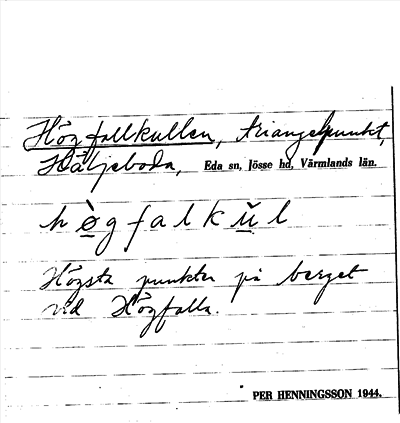 Högfallkullen, triangelpunkt,
Häljeboda, Eda sn, Jösse hd, Värmlands län.
hø̀gfalkŭl
Högsta punkten på berget
vid Högfalla.
PER HENNINGSSON 1944.